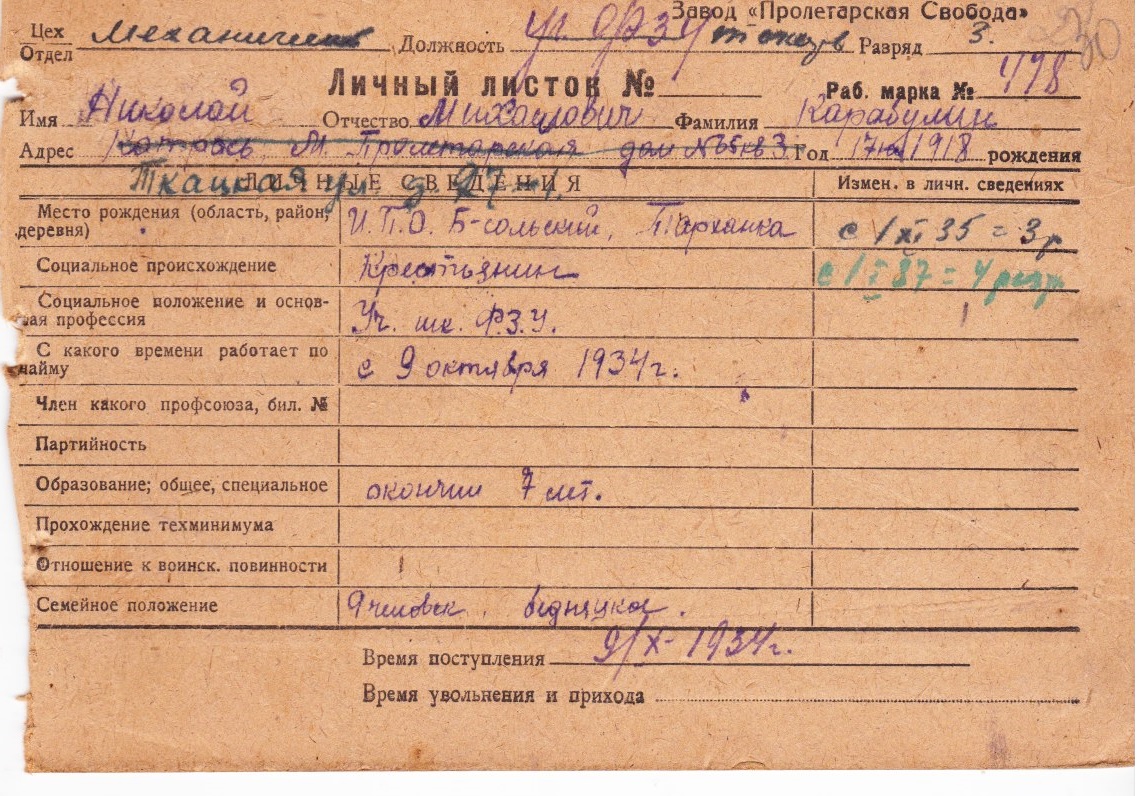 Завод «Пролетарская Свобода»
Цех Механический Должность уч. ФЗУ токарь Разряд 3.
Отдел
Личный листок №
Раб. марка № 498
Имя Николай Отчество Михайлович Фамилия Карабулин
Адрес М. Пролетарская дом № 65 кв 3. Год 1918 рождения
Ткацкая ул. д. 27
ЛИЧНЫЕ СВЕДЕНИЯ Измен. в личн. сведениях
Место рождения (область, район, деревня) И.П.О. Б-сольский, Тарханка с 1/XI 35 = 3 р
Социальное происхождение Крестьянин с 1/I 37 = 4 разр
Социальное положение и основная профессия Уч. шк. Ф.З.У.
С какого времени работает по найму с 9 октября 1934 г.
Член какого профсоюза, бил. №
Партийность
Образование; общее, специальное окончил 7 лет.
Прохождение техминимума
Отношение к воинск. повинности
Семейное положение 9 человек, бедняцкое.
Время поступления 9/X-1934 г.
Время увольнения и прихода